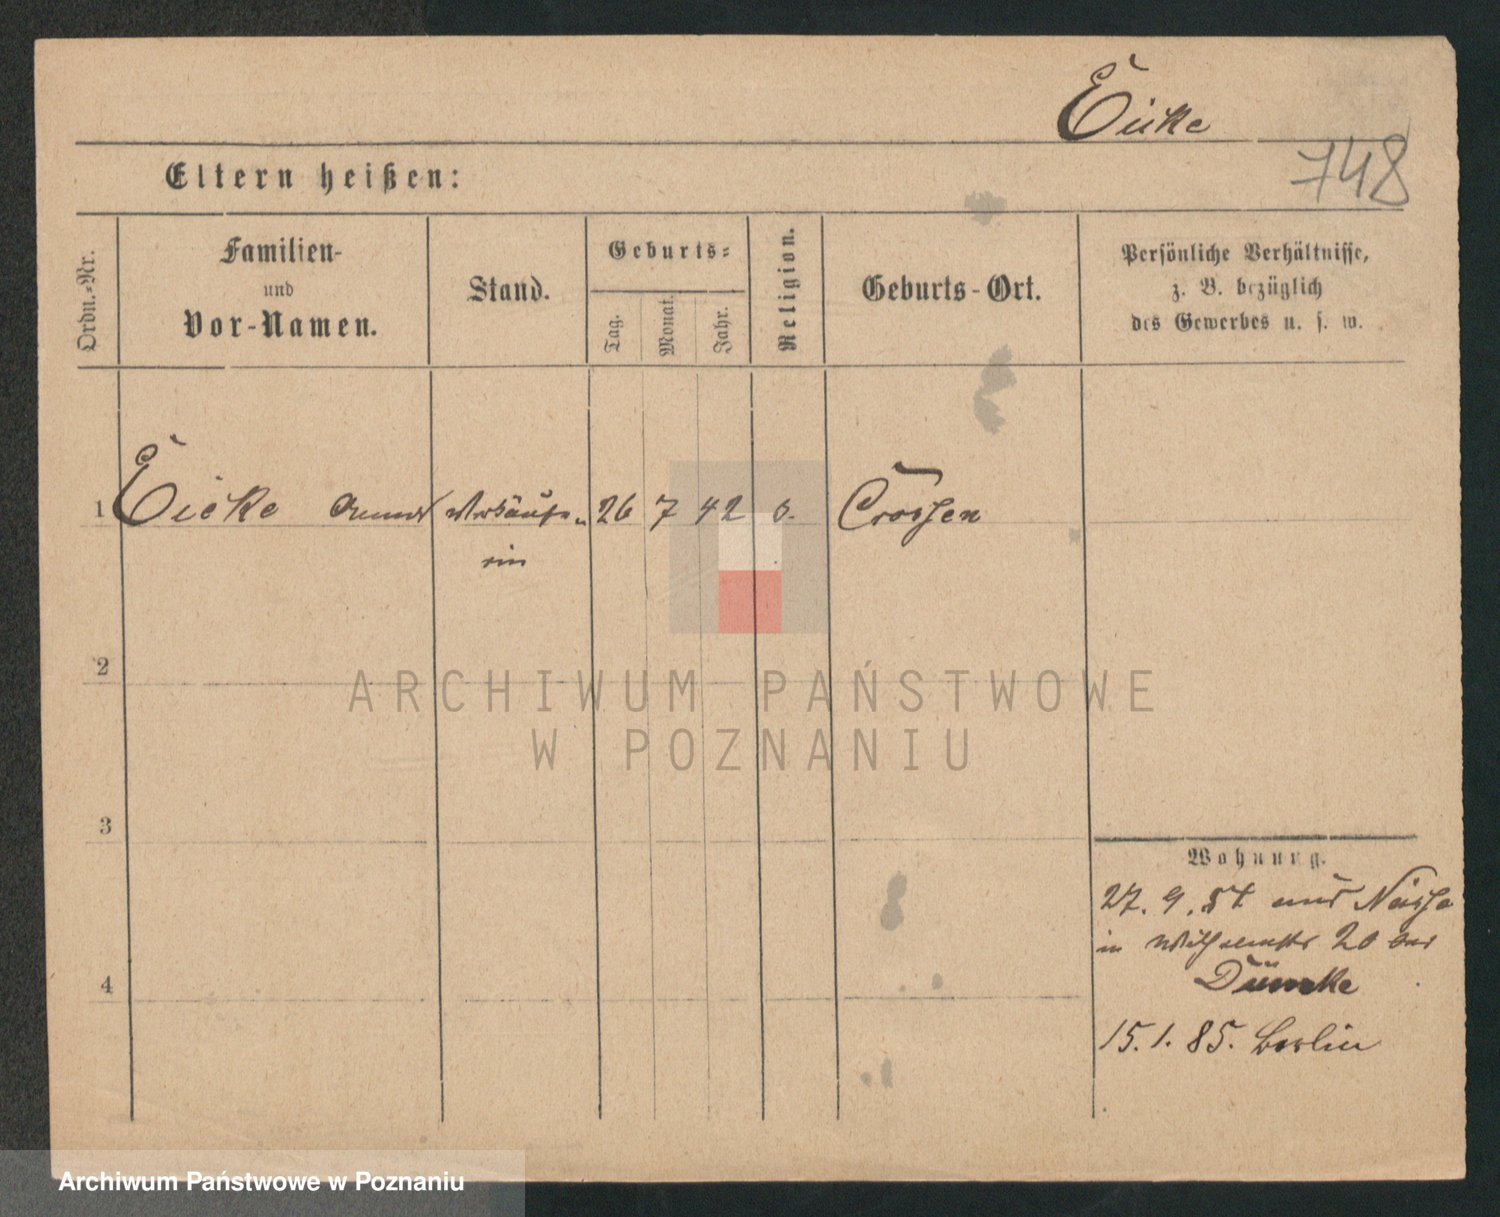 Eicke
748
Eltern heißen:
Ordn.-Nr.
Familien-
und
Vor-Namen.
Stand.
Geburts-
Tag.
Monat.
Jahr.
Religion.
Geburts-Ort.
Persönliche Verhältnisse,
z. B. bezüglich
des Gewerbes u. s. w.
1 Eicke Verkäufe- 26 7 42 Crossen
rin
2
ARCHIWUM PAŃSTWOWE
W POZNANIU
3
Wohnung.
27. 9. 84 aus Neisse
in 20 bei
Dümke
4
15. 1. 85. Berlin
Archiwum Państwowe w Poznaniu